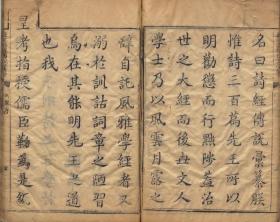 名曰詩經傳說彙纂朕
惟詩三百篇先王所以
明勸懲而行黜陟蓋治
世之大經而後世文人
學士乃以風雲月露之
辭自託風雅學經者又
溺於訓詁詞章之陋習
烏在其能明先王之道
也我
皇考指授儒臣勤為是編